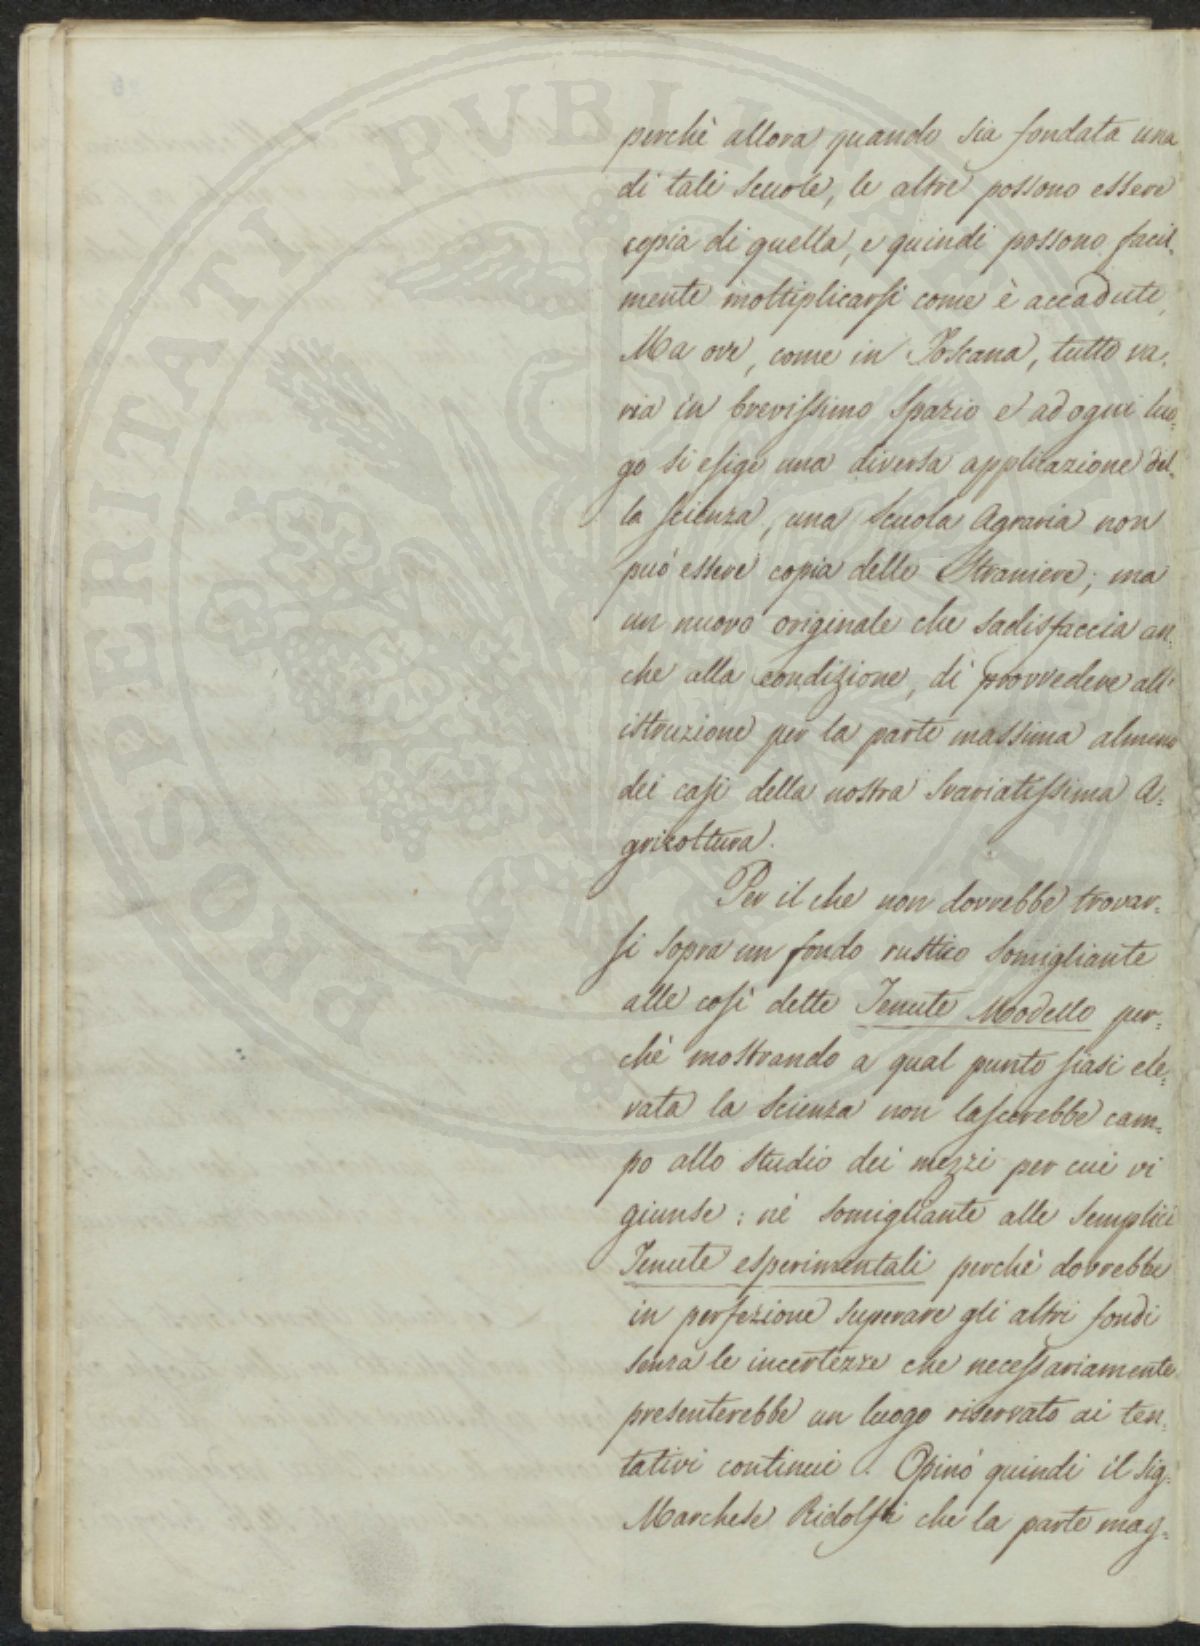 perchè allora quando sia fondata una
di tali Scuole, le altre possono essere
copia di quella, e quindi possono facil-
mente moltiplicarsi come è accaduto,
Ma ove, come in Toscana, tutto va-
ria in brevissimo Spazio e ad ogni luo-
go si esige una diversa applicazione del-
la scienza, una Scuola Agraria non
può essere copia delle Straniere; ma
un nuovo originale che sadisfaccia an-
che alla condizione, di provvedere all'
istruzione per la parte massima almeno
dei casi della nostra Svariatissima A=
gricoltura.
Per il che non dovrebbe trovar=
si sopra un fondo rustico somigliante
alle così dette Tenute Modello per=
chè mostrando a qual punto siasi ele=
vata la Scienza non lascerebbe cam=
po allo studio dei mezzi per cui vi
giunse; nè somigliante alle Semplici
Tenute esperimentali perchè dovrebbe
in perfezione superare gli altri fondi
senza le incertezze che necessariamente
presenterebbe un luogo riservato ai ten-
tativi continui. Opinò quindi il Sig.
Marchese Ridolfi che la parte mag=
PROSPERITATI PVBLICAE